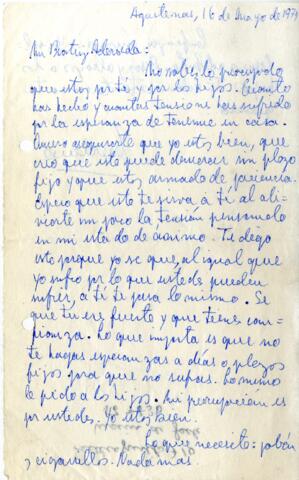 16 de Mayo de 1974
Mi Beatriz Adorada:
No sabes lo preocupado
que estoy por ti y por los hijos. Cuanto
has hecho y cuantas tensiones has sufrido
por la esperanza de tenerme en casa.
Quiero asegurarte que yo estoy bien, que
creo que esto puede demorar sin plazo
fijo y que estoy armado de paciencia.
Espero que esto te sirva a ti al ali-
viarte un poco la tensión pensando
en mi estado de ánimo. Te digo
esto porque yo se que, al igual que
yo sufro por lo que ustedes pueden
sufrir, a ti te pasa lo mismo. Se
que tu eres fuerte y que tienes con-
fianza. Lo que importa es que no
te hagas esperanzas a días o plazos
fijos para que no sufras. Lo mismo
le pido a los hijos. Mi preocupación es
por ustedes. Yo estoy bien.
Lo que necesito: jabón
y cigarrillos. Nada más.